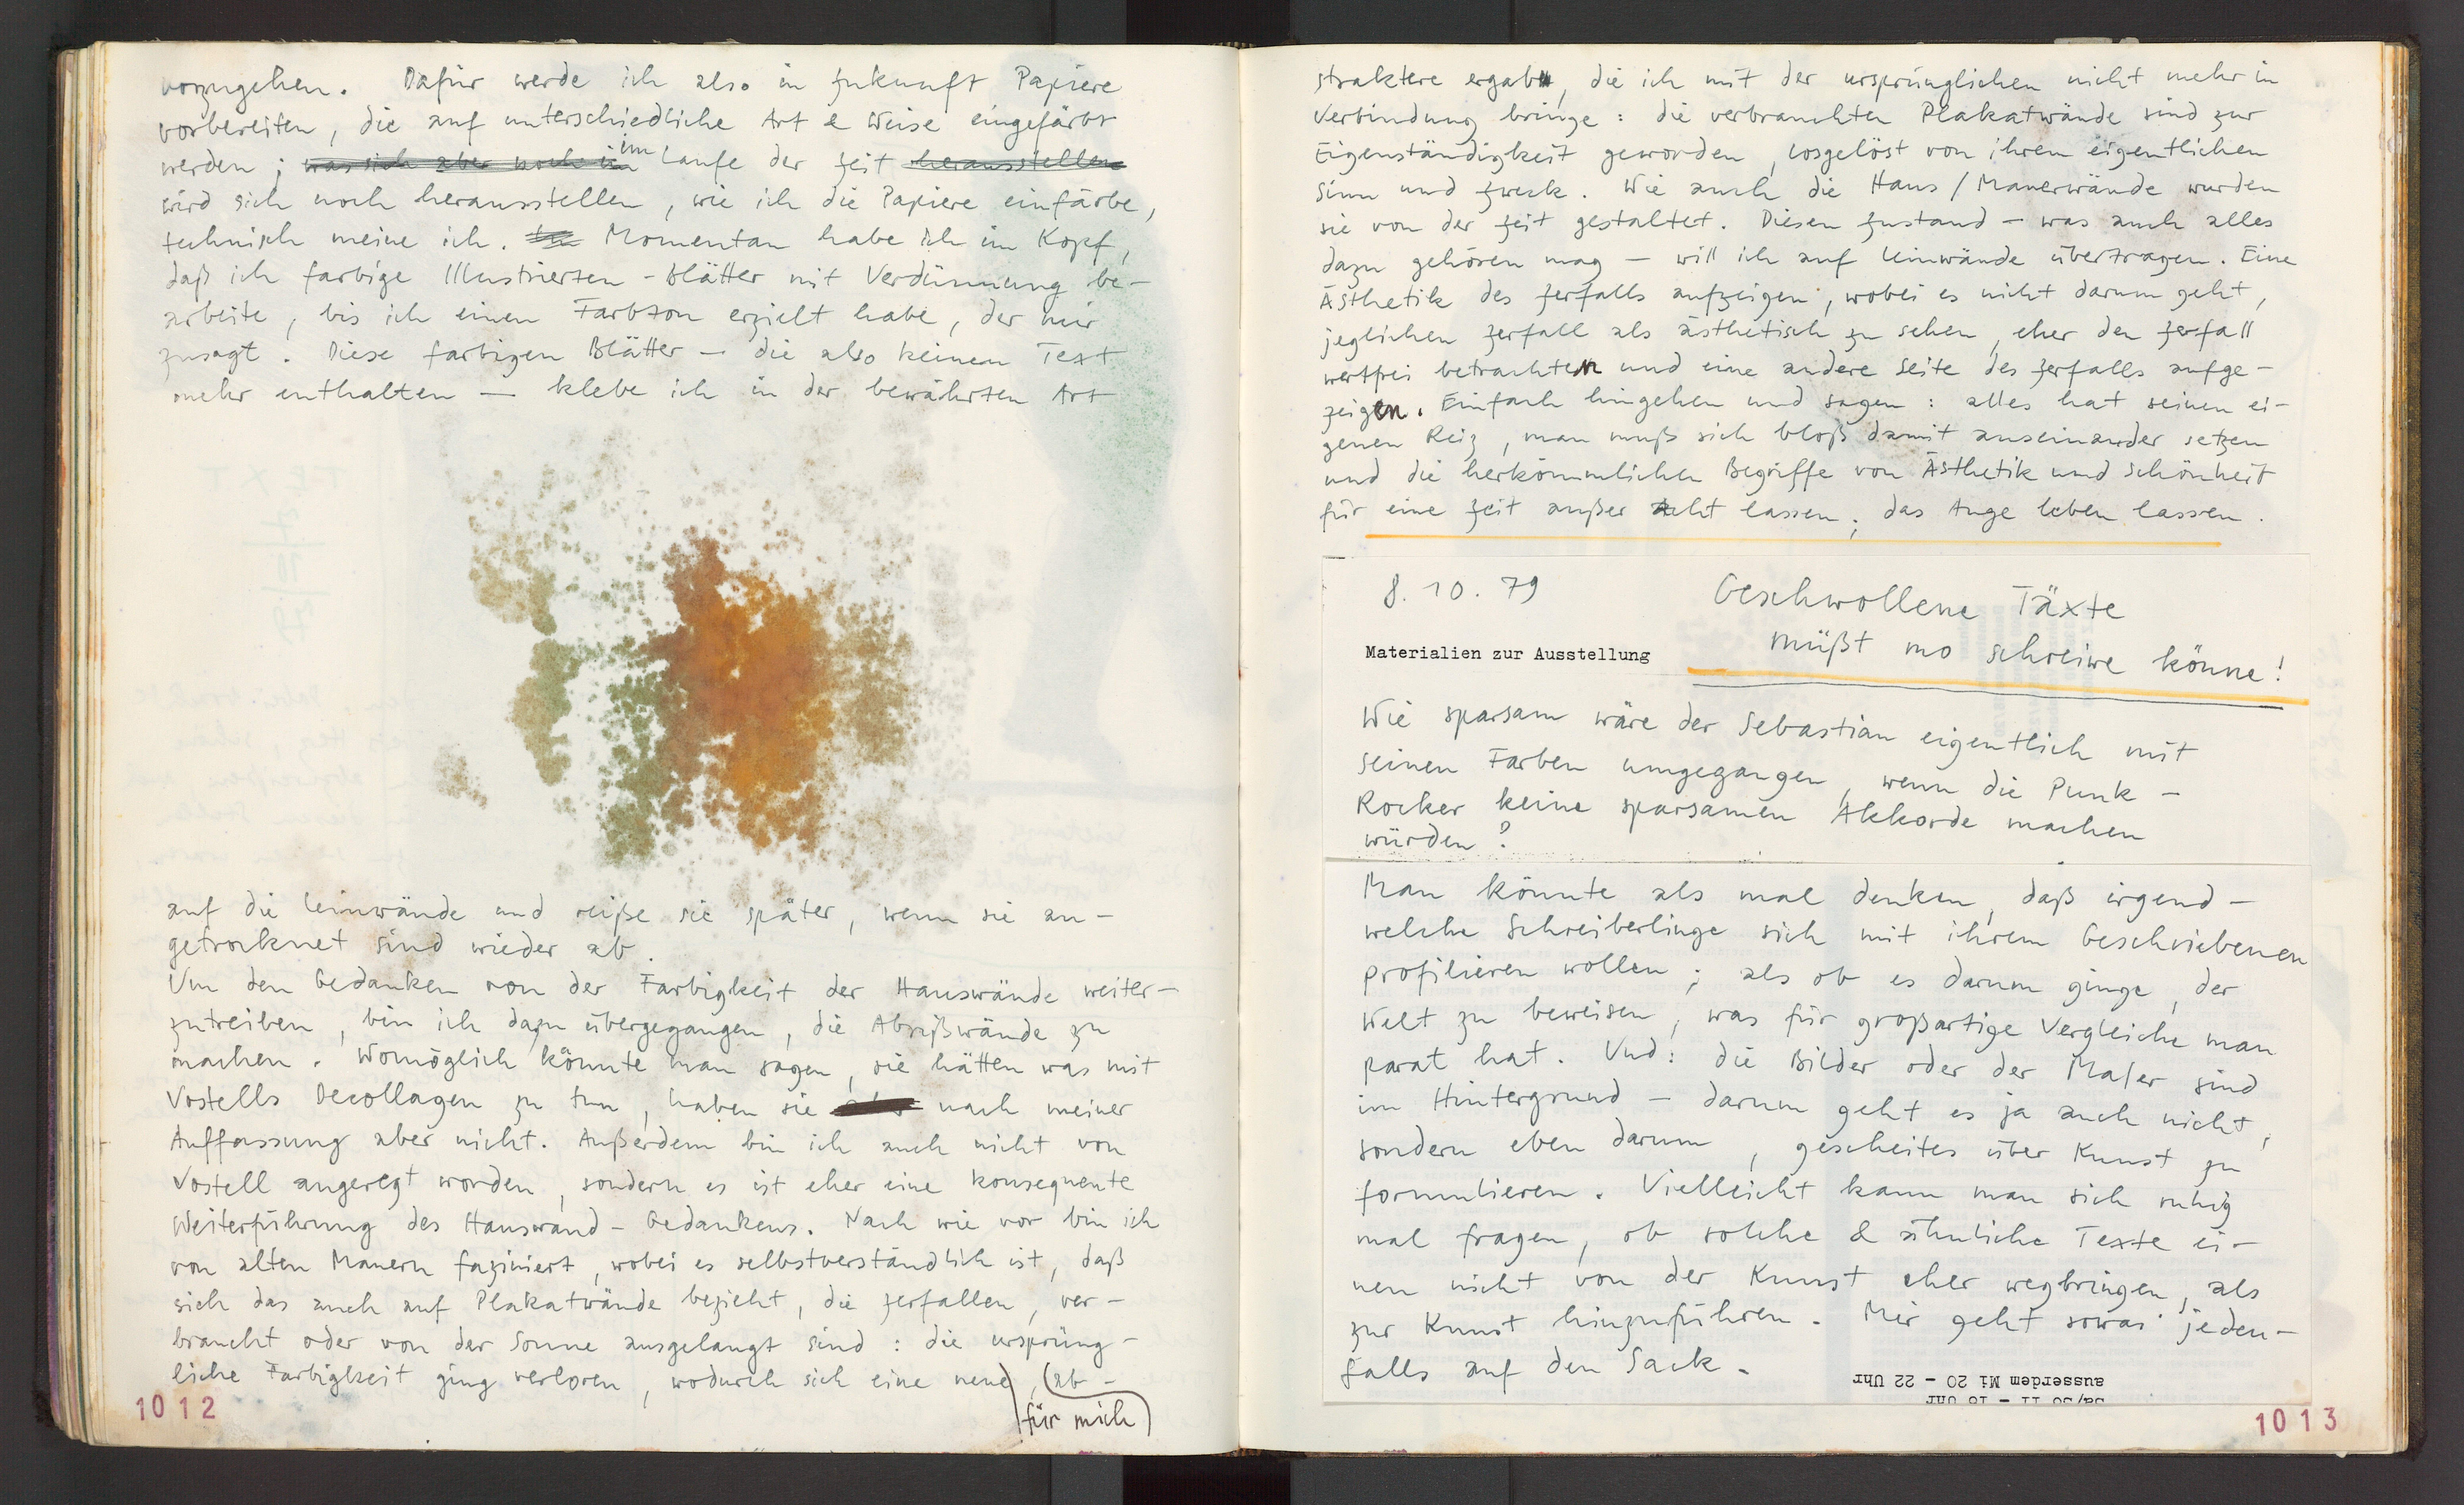 vorzugehen. Dafür werde ich also in Zukunft Papiere
vorbereiten, die auf unterschiedliche Art & Weise eingefärbt
werden; was sich aber noch in im Laufe der Zeit herausstellen
wird sich noch herausstellen, wie ich die Papiere einfärbe,
technisch meine ich. Momentan habe ich im Kopf,
daß ich farbige Illustrierten-Blätter mit Verdünnung be-
arbeite, bis ich einen Farbton erzielt habe, der mir
zusagt. Diese farbigen Blätter – die also keinen Text
mehr enthalten – klebe ich in der bewährten Art
auf die Leinwände und reiße sie später, wenn sie an-
getrocknet sind wieder ab.
Um den Gedanken von der Farbigkeit der Hauswände weiter-
zutreiben, bin ich dazu übergegangen, die Abrißwände zu
machen. Womöglich könnte man sagen, sie hätten was mit
Vostells Decollagen zu tun, haben sie nach meiner
Auffassung aber nicht. Außerdem bin ich auch nicht von
Vostell angeregt worden, sondern es ist eher eine konsequente
Weiterführung des Hauswand-Gedankens. Nach wie vor bin ich
von alten Mauern faziniert, wobei es selbstverständlich ist, daß
sich das auch auf Plakatwände bezieht, die zerfallen, ver-
braucht oder von der Sonne ausgelaugt sind: die ursprüng-
liche Farbigkeit ging verloren, wodurch sich eine neue, (ab-
für mich)
1012
straktere ergab, die ich mit der ursprünglichen nicht mehr in
Verbindung bringe: die verbrauchten Plakatwände sind zur
Eigenständigkeit geworden, losgelöst von ihrem eigentlichen
Sinn und Zweck. Wie auch die Haus/Mauerwände wurden
sie von der Zeit gestaltet. Diesen Zustand – was auch alles
dazu gehören mag – will ich auf Leinwände übertragen. Eine
Ästhetik des Zerfalls aufzeigen, wobei es nicht darum geht,
jeglichen Zerfall als ästhetisch zu sehen, eher den Zerfall
wertfrei betrachten und eine andere Seite des Zerfalls aufge-
zeigen. Einfach hingehen und sagen: alles hat seinen ei-
genen Reiz, man muß sich bloß damit auseinander setzen
und die herkömmlichen Begriffe von Ästhetik und Schönheit
für eine Zeit außer Acht lassen; das Auge leben lassen.
8.10.79
Geschwollene Täxte
müßt mo schreiwe könne!
Materialien zur Ausstellung
Wie sparsam wäre der Sebastian eigentlich mit
seinen Farben umgegangen, wenn die Punk-
Rocker keine sparsamen Akkorde machen
würden?
Man könnte als mal denken, daß irgend-
welche Schreiberlinge sich mit ihrem Geschriebenen
profilieren wollen; als ob es darum ginge, der
Welt zu beweisen, was für großartige Vergleiche man
parat hat. Und: die Bilder oder der Maler sind
im Hintergrund – darum geht es ja auch nicht,
sondern eben darum, gescheites über Kunst zu
formulieren. Vielleicht kann man sich ruhig
mal fragen, ob solche & ähnliche Texte ei-
nen nicht von der Kunst eher wegbringen, als
zur Kunst hinzuführen. Mir geht sowas jeden-
falls auf den Sack.
ausserdem Mi 20 - 22 Uhr
Sa/So 11 - 18 Uhr
1013